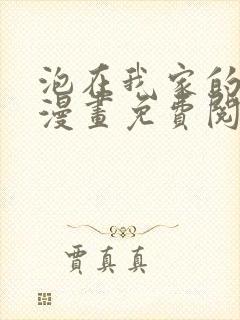 泡在我家的
漫畫免費閱
賈真真